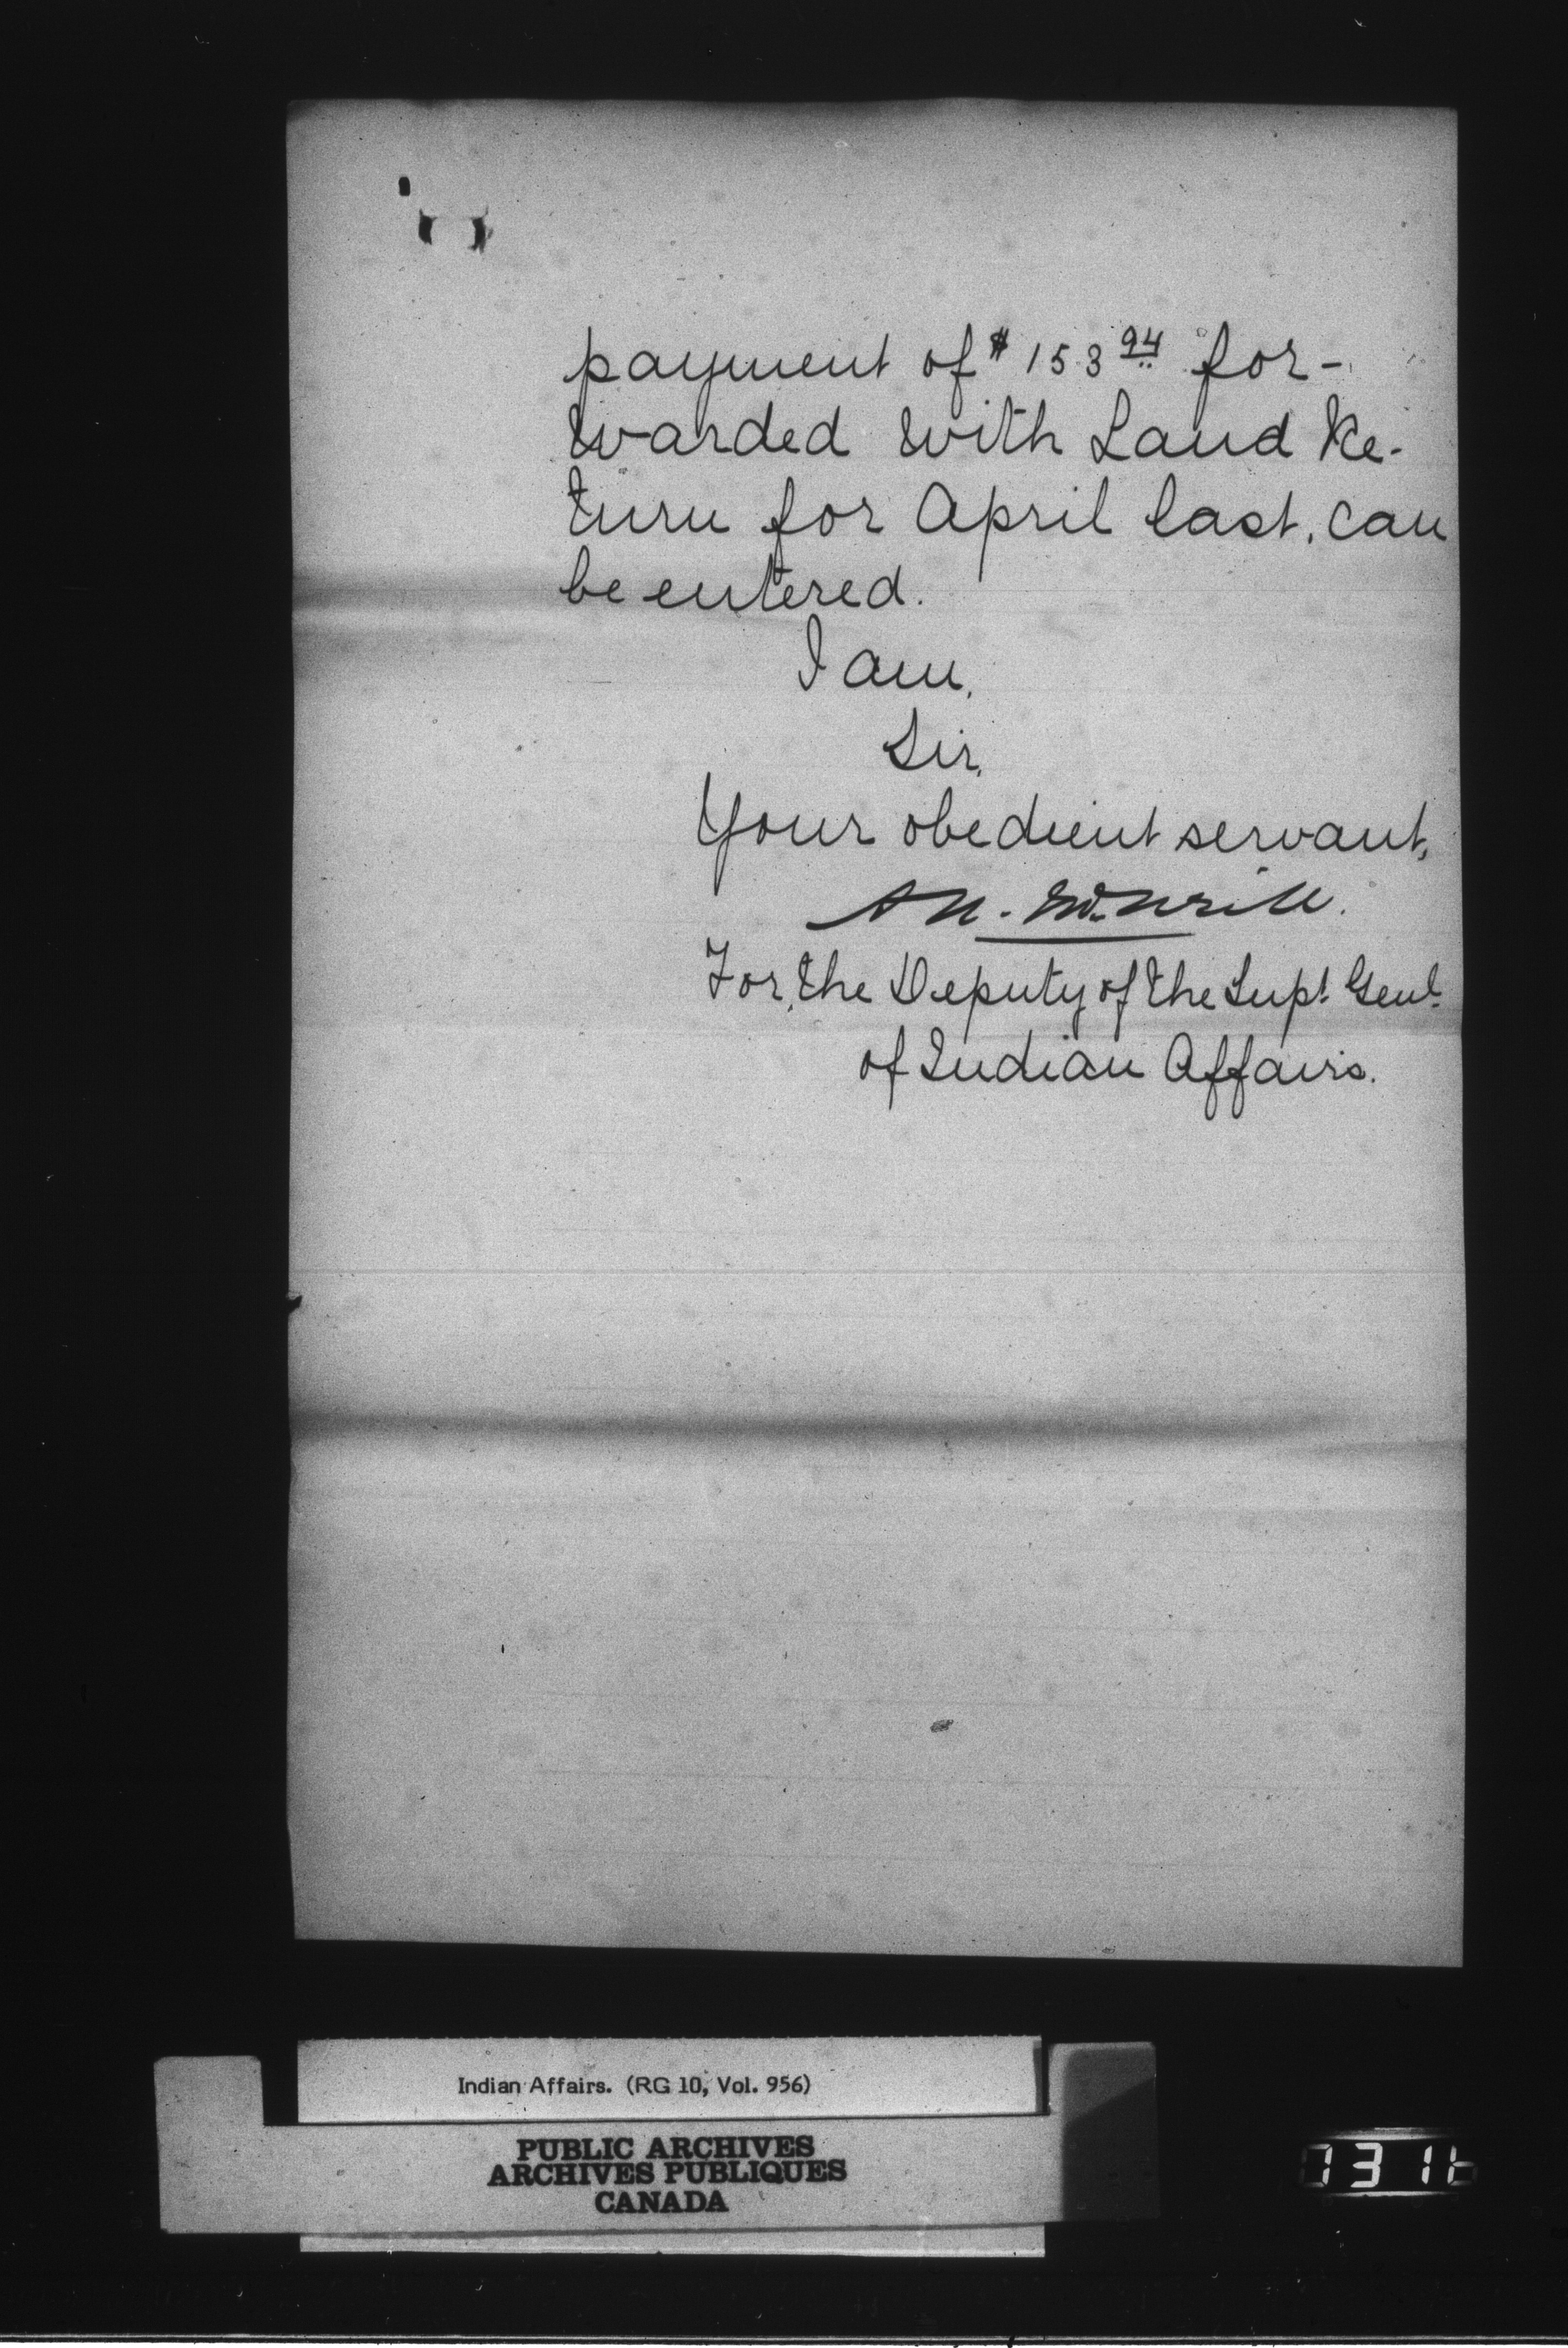 payment of $153 94 for-
warded with Land Re-
turn for April last, can
be entered.
I am,
Sir,
Your obedient servant,
For the Deputy of the Supt. Genl.
of Indian Affairs.
Indian Affairs. (RG 10, Vol. 956)
PUBLIC ARCHIVES
ARCHIVES PUBLIQUES
CANADA